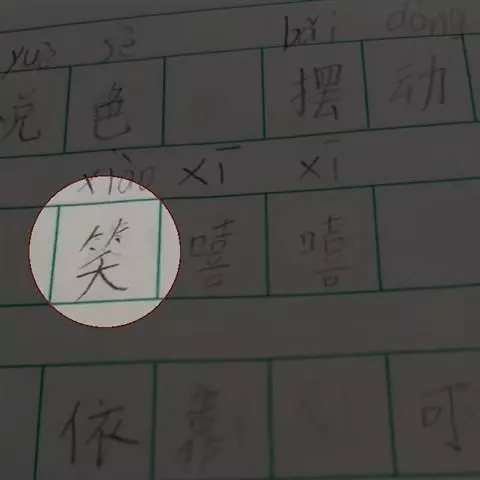 yuè sè bǎi dòng
色 摆 动
xiào xī xī
笑 嘻 嘻
依 靠 可